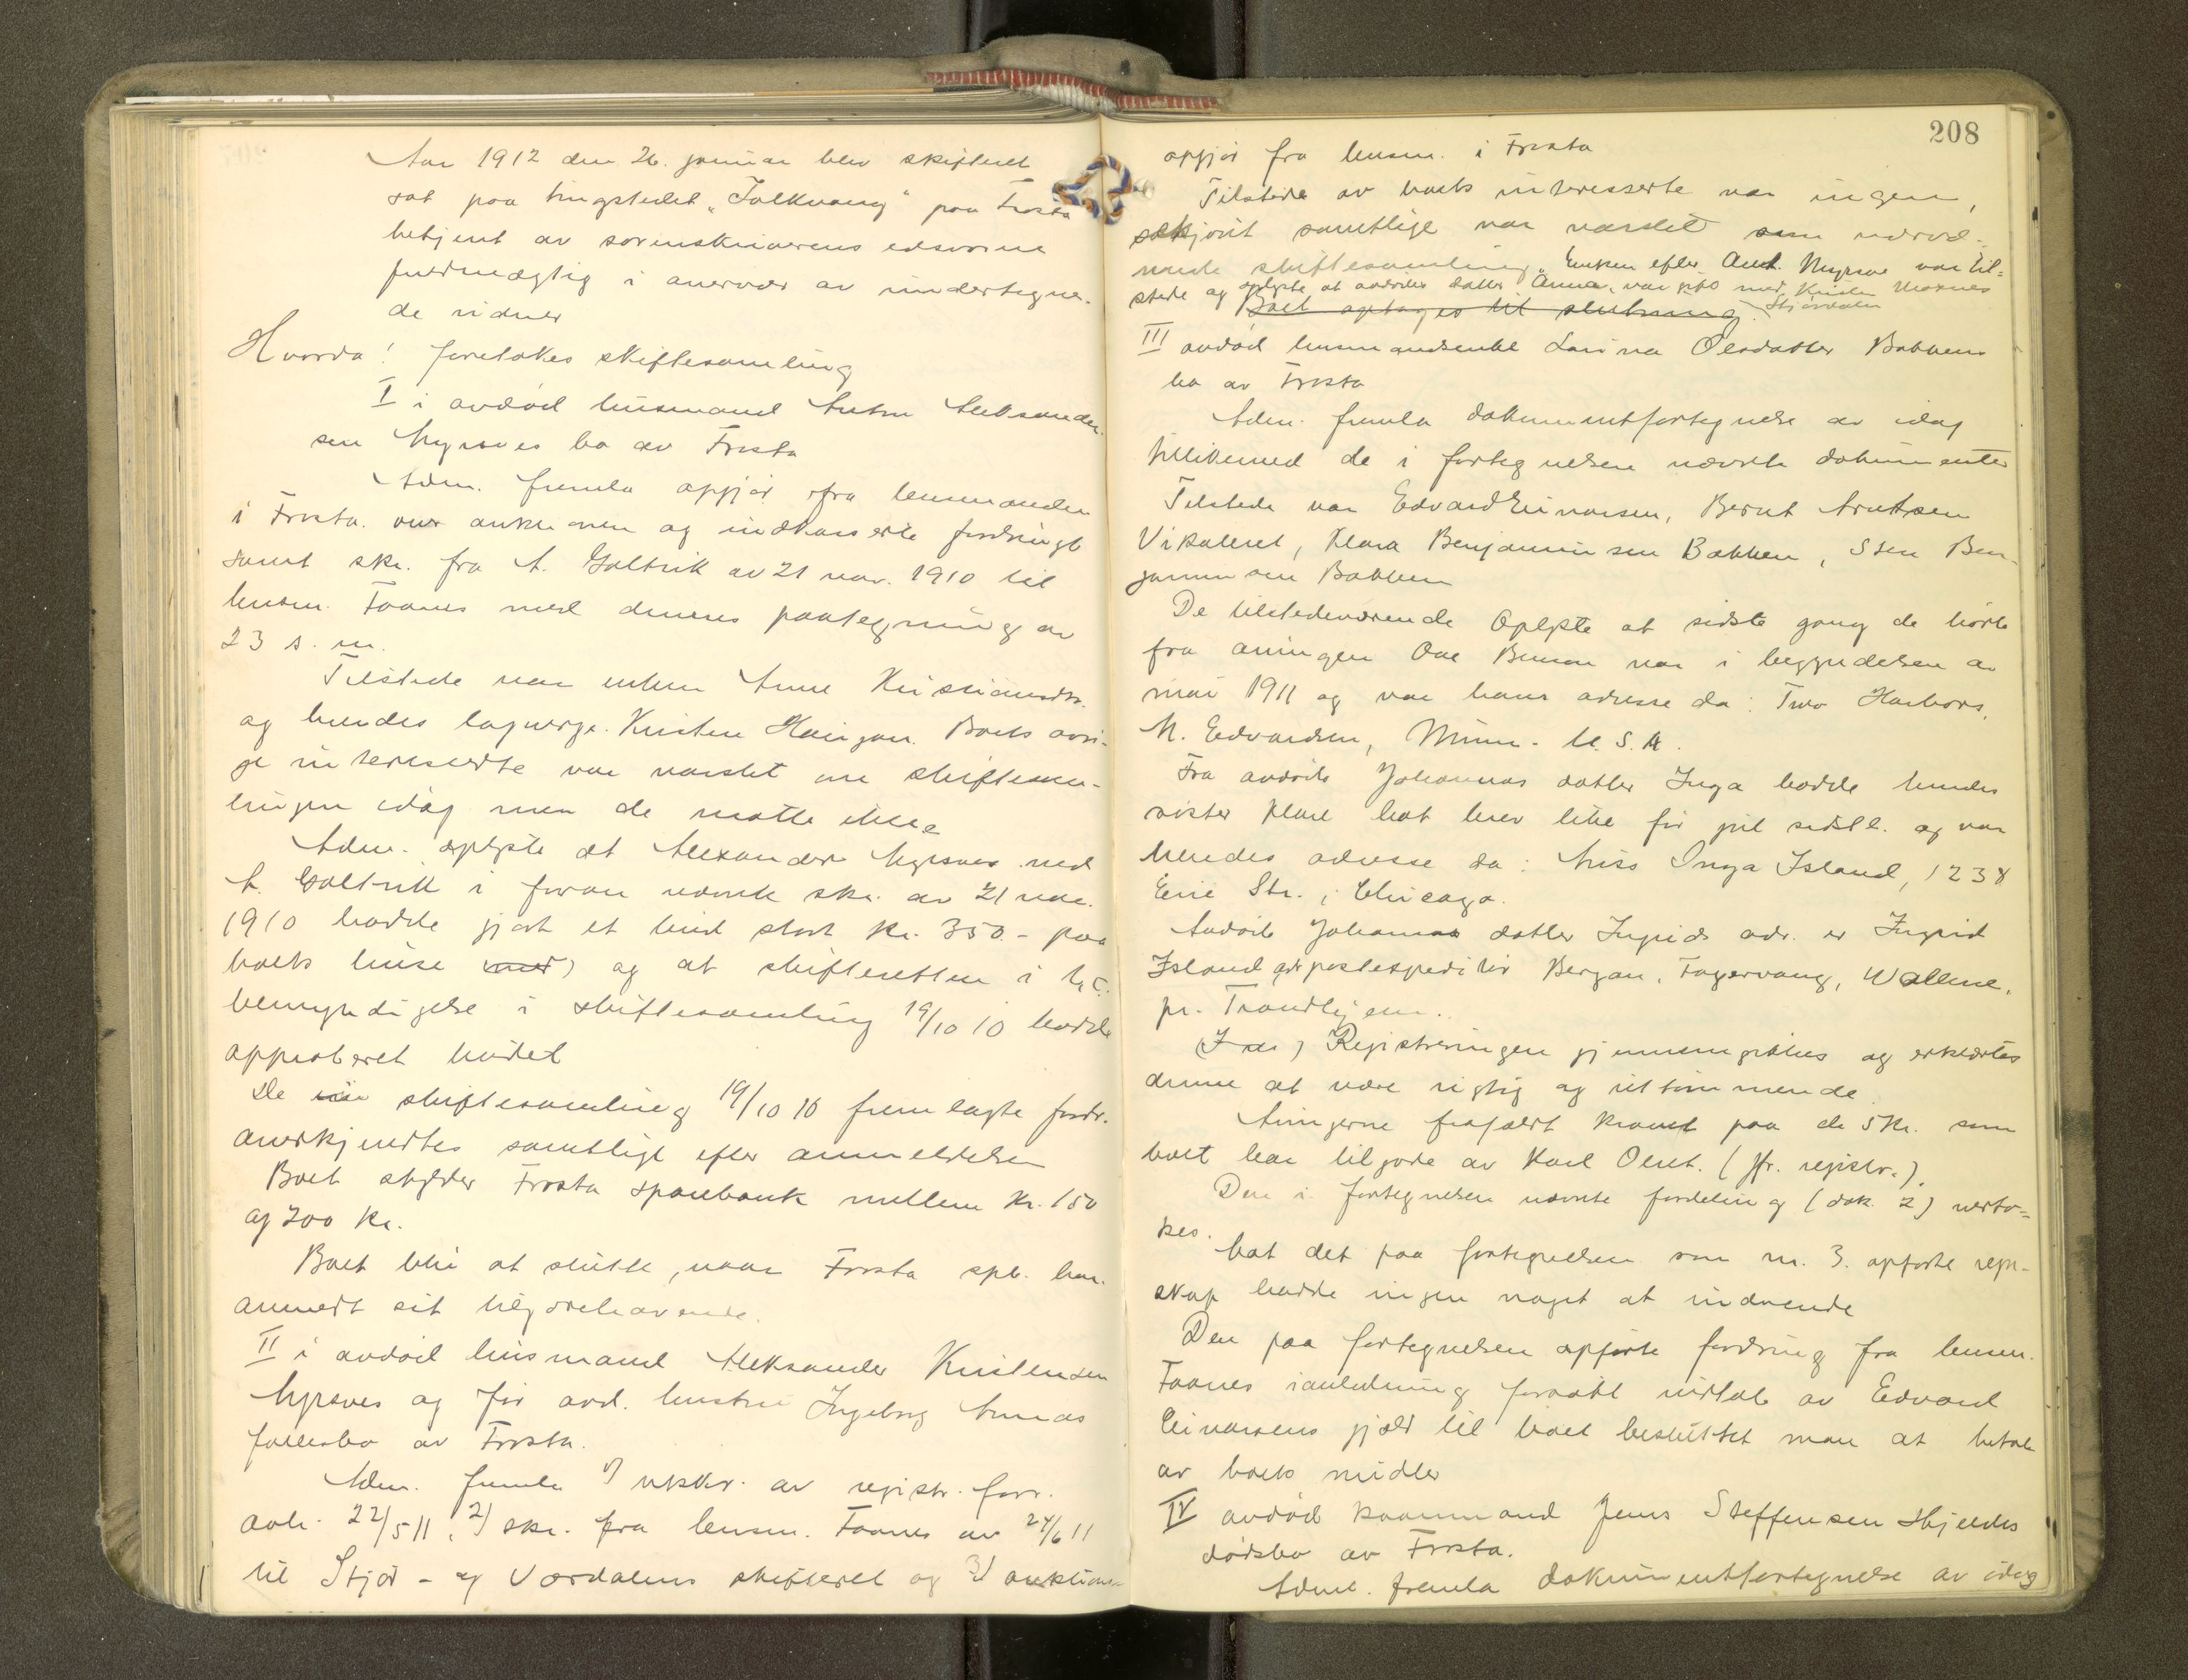 Aar 1912 den 26. januar blev skifteret
sat paa tingstedet "Folkvang" paa Frosta
betjent av sorenskriverens edsvorne
fuldmægtig i overvær av undertegne-
de vidner
Hvorda! foretokes skiftesamling
I i avdød husmand Anton Aleksander-
sen Myrsves bo av Frosta
Adm. fremla opgjør fra lensmanden
i Frosta over auktionen og indkasserte fordringer
samt skr. fra A. Galtvik av 21 nov. 1910 til
lensm. Faanes med dennes paategning av
23 s. m.
Tilstede var enken Anne Kristiansdtr.
og hendes lagverge Kristen Haugan. Boets øvri-
ge interesserte var varslet om skiftesam-
lingen idag men de møtte ikke
Adm. oplyste at Alexander Myrsves ved
A. Galtvik i foran nævnte skr. av 21 nov.
1910 hadde gjort et bud stort kr. 350.- paa
boets huse (med) og at skifteretten i h.t.
bemyndigelse i skiftesamling 19/10 10 hadde
approberet budet
De i skiftesamling 19/10 10 fremlagte fordr.
anerkjendtes samtlige efter anmeldelsen
Boet skylder Frosta sparebank mellem kr. 150
og 200 kr.
Boet blir at slutte, naar Frosta spb. har
anmeldt sit tilgodehavende.
II i avdød husmand Aleksander Kristensen
Myrsves og før avd. hustru Ingeborg Annas
fællesbo av Frosta.
Adm. fremla 1) utskr. av registr. forr.
avh. 22/5 11, 2) skr. fra lensm. Faanes av 24/6 11
til Stjør- og Værdalens skifteret og 3) auktions-
208
opgjør fra lensm. i Frosta
Tilstede av boets interesserte var ingen,
skjønt samtlige var varslet om nærvæ-
rende skiftesamling. Enken efter Ant. Myrsve var til-
stede og oplyste at avdødes datter Anna, var gift med Kristen Moxnes
Boet optages til slutning. Stjørdalen
III avdød husmandsenke Larina Olsdatter Bakkens
bo av Frosta
Adm. fremla dokumentfortegnelse av idag
tillikemed de i fortegnelsen nævnte dokumenter
Tilstede var Edvard Einarsen, Bernt Arntsen
Vikaleret, Klara Benjaminsen Bakken, Sten Ben-
jaminsen Bakken
De tilstedeværende oplyste at sidste gang de hørte
fra arvingen Ove Benson var i begyndelsen av
mai 1911 og var hans adresse da: Two Harbors,
M. Edvardsen, Minn. U. S. A.
Fra avdøde Johannas datter Inga hadde hendes
søster Klara hat brev like før jul sidstl. og var
hendes adresse da: Miss Inga Island, 1238
Erie Str., Chicago.
Avdøde Johannas datter Ingrids adr. er Ingrid
Island adr postexpeditør Bergan, Fagervang, Wollene,
pr. Trondhjem.
Registreringen gjennemgikkes og erklærtes
denne at være rigtig og uttømmende.
Arvingerne frafaldt kravet paa de 5 kr. som
boet har tilgode av Karl Olsret. (jfr. registr.).
Den i fortegnelsen nævnte fordeling (dok. 2) vedto-
kes.
Mot det paa fortegnelsen som nr. 3. opførte regn-
skap hadde ingen noget at indvende
Den paa fortegnelsen opførte fordring fra lensm.
Faanes i anledning forsøkt indtale av Edvard
Einarsens gjæld til boet besluttet man at betale
av boets midler
IV avdød kaarmand Jens Steffensen Hjeldes
dødsbo av Frosta.
Adm. fremla dokumentfortegnelse av idag